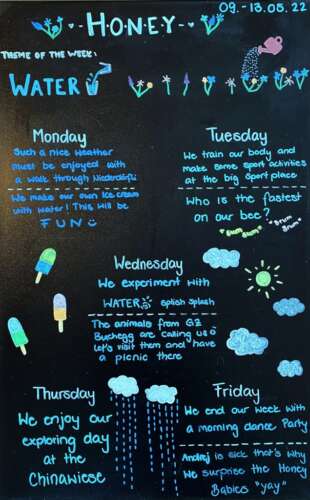 09.-13.05.22
- H·O·N·E·Y -
THEME OF THE WEEK:
WATER
Monday
Such a nice weather
must be enjoyed with
a walk through Niederdörfli
We make our own ice cream
with water! This will be
FUN
Tuesday
We train our body and
make some sport activities
at the big sport place
Who is the fastest
on our bee?
Sum Sum
Brum Brum
Wednesday
We experiment with
WATER splish Splash
The animals from GZ
Buchegg are calling us
Let's visit them and have
a picnic there
Thursday
We enjoy our
exploring day
at the
Chinawiese
Friday
We end our week with
a morning dance Party
Andrej is sick that's why
We surprise the Honey
Babies "yay"